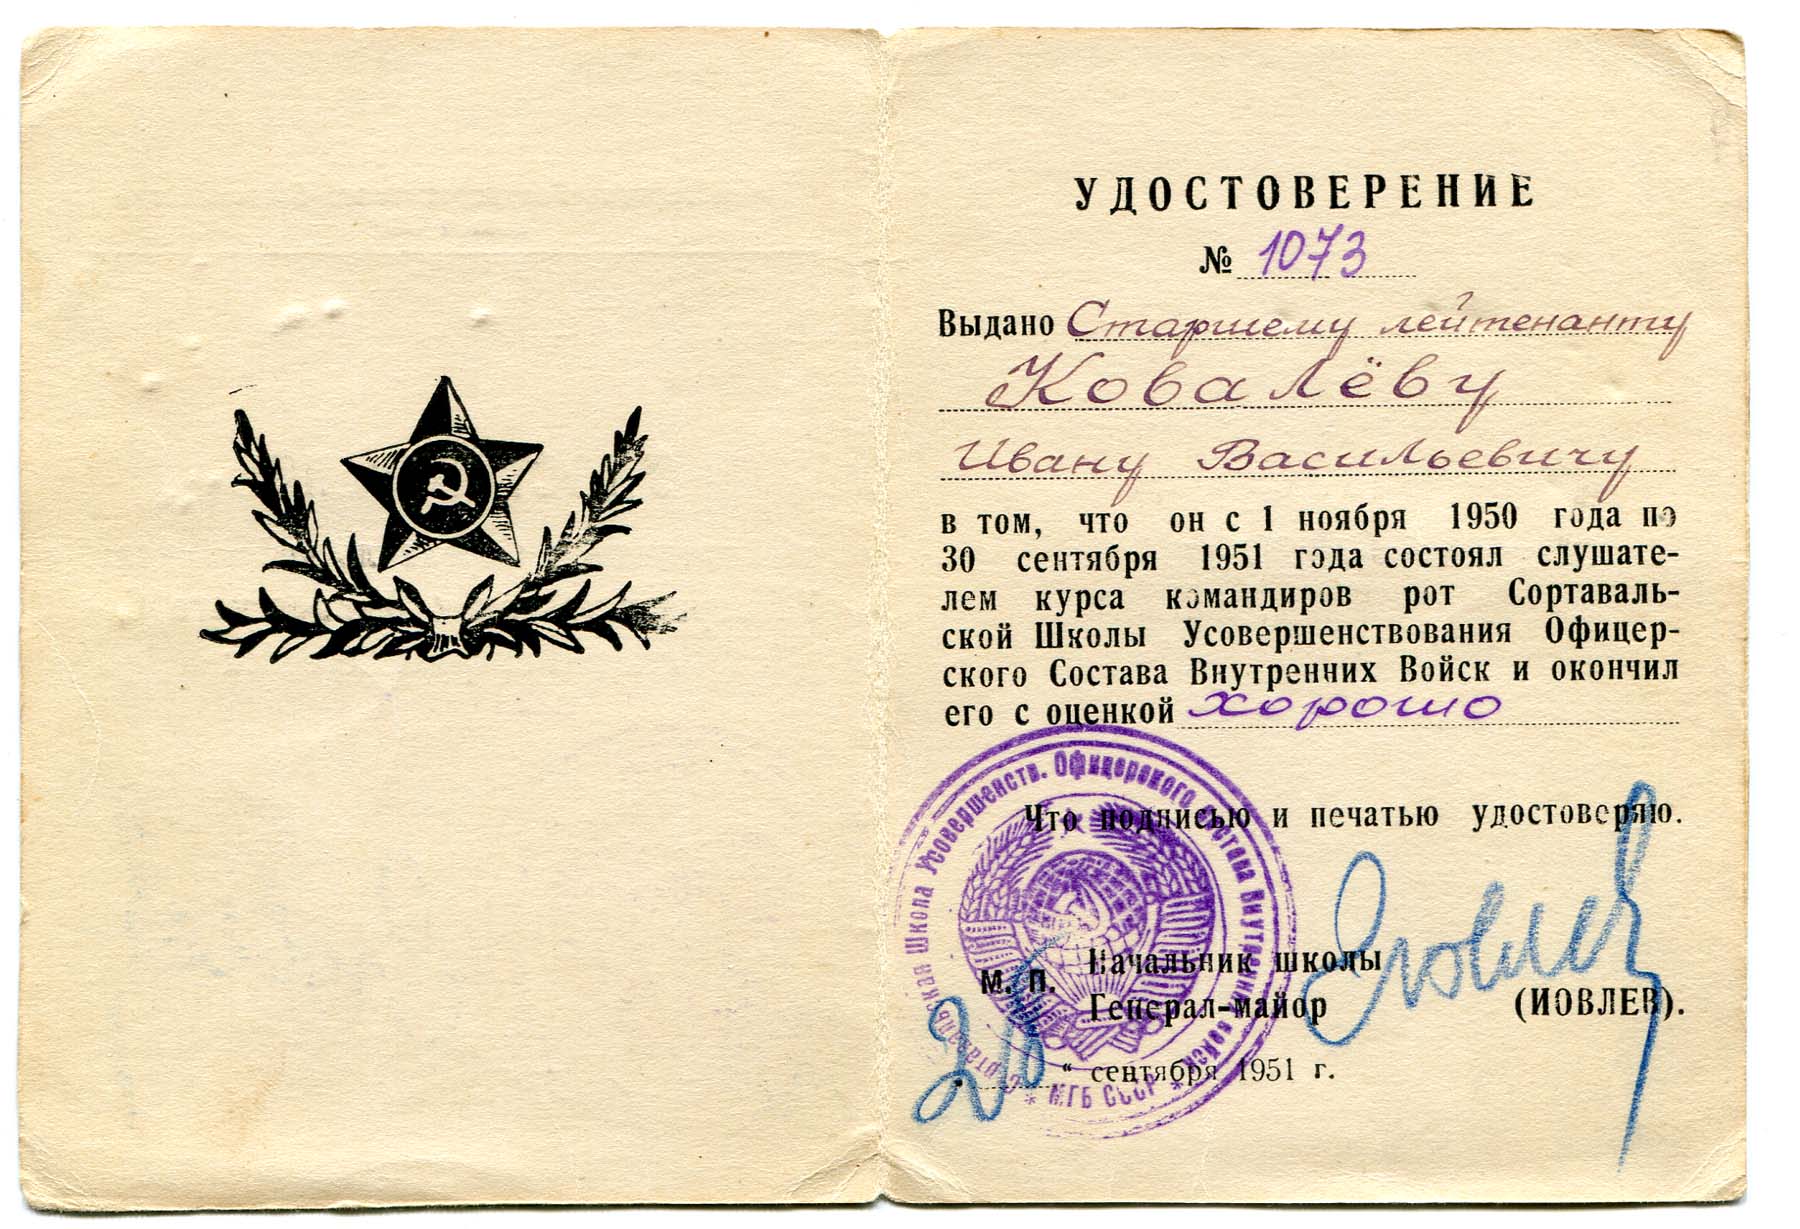 УДОСТОВЕРЕНИЕ
№ 1073
Выдано Старшему лейтенанту
Ковалёву
Ивану Васильевичу
в том, что он с 1 ноября 1950 года по
30 сентября 1951 года состоял слушате-
лем курса командиров рот Сортаваль-
ской Школы Усовершенствования Офицер-
ского Состава Внутренних Войск и окончил
его с оценкой хорошо
Что подписью и печатью удостоверяю.
М. П. Начальник школы
Генерал-майор (ИОВЛЕВ).
Иовлев
26 “ сентября 1951 г.
Сортавальская Школа Усовершенств. Офицерского Состава Внутренних Войск
* МГБ СССР *